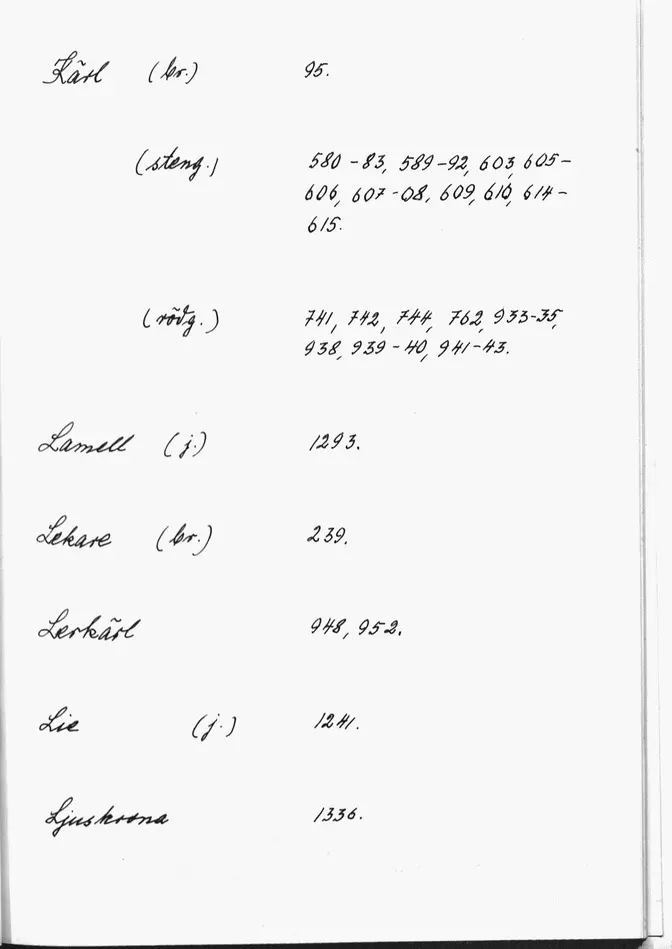 Kärl (br.) 95.
(steng.) 580-83, 589-92, 603, 605-
606, 607-08, 609, 610, 614-
615.
(rödg.) 741, 742, 744, 762, 933-35,
938, 939-40, 941-43.
Lamell (j.) 1293.
Lekare (br.) 239.
Lerkärl 948, 952.
Lie (j.) 1241.
Ljuskrona 1336.